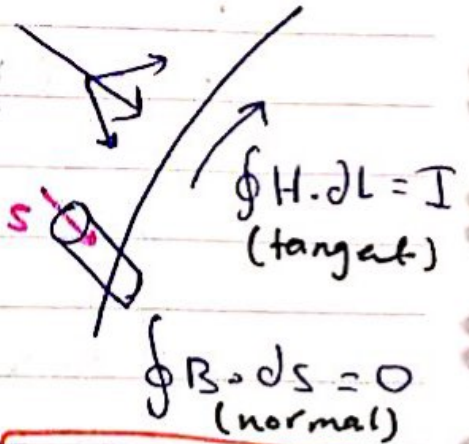 ∮H.dL = I
(tangent)
S
∮B.ds = 0
(normal)